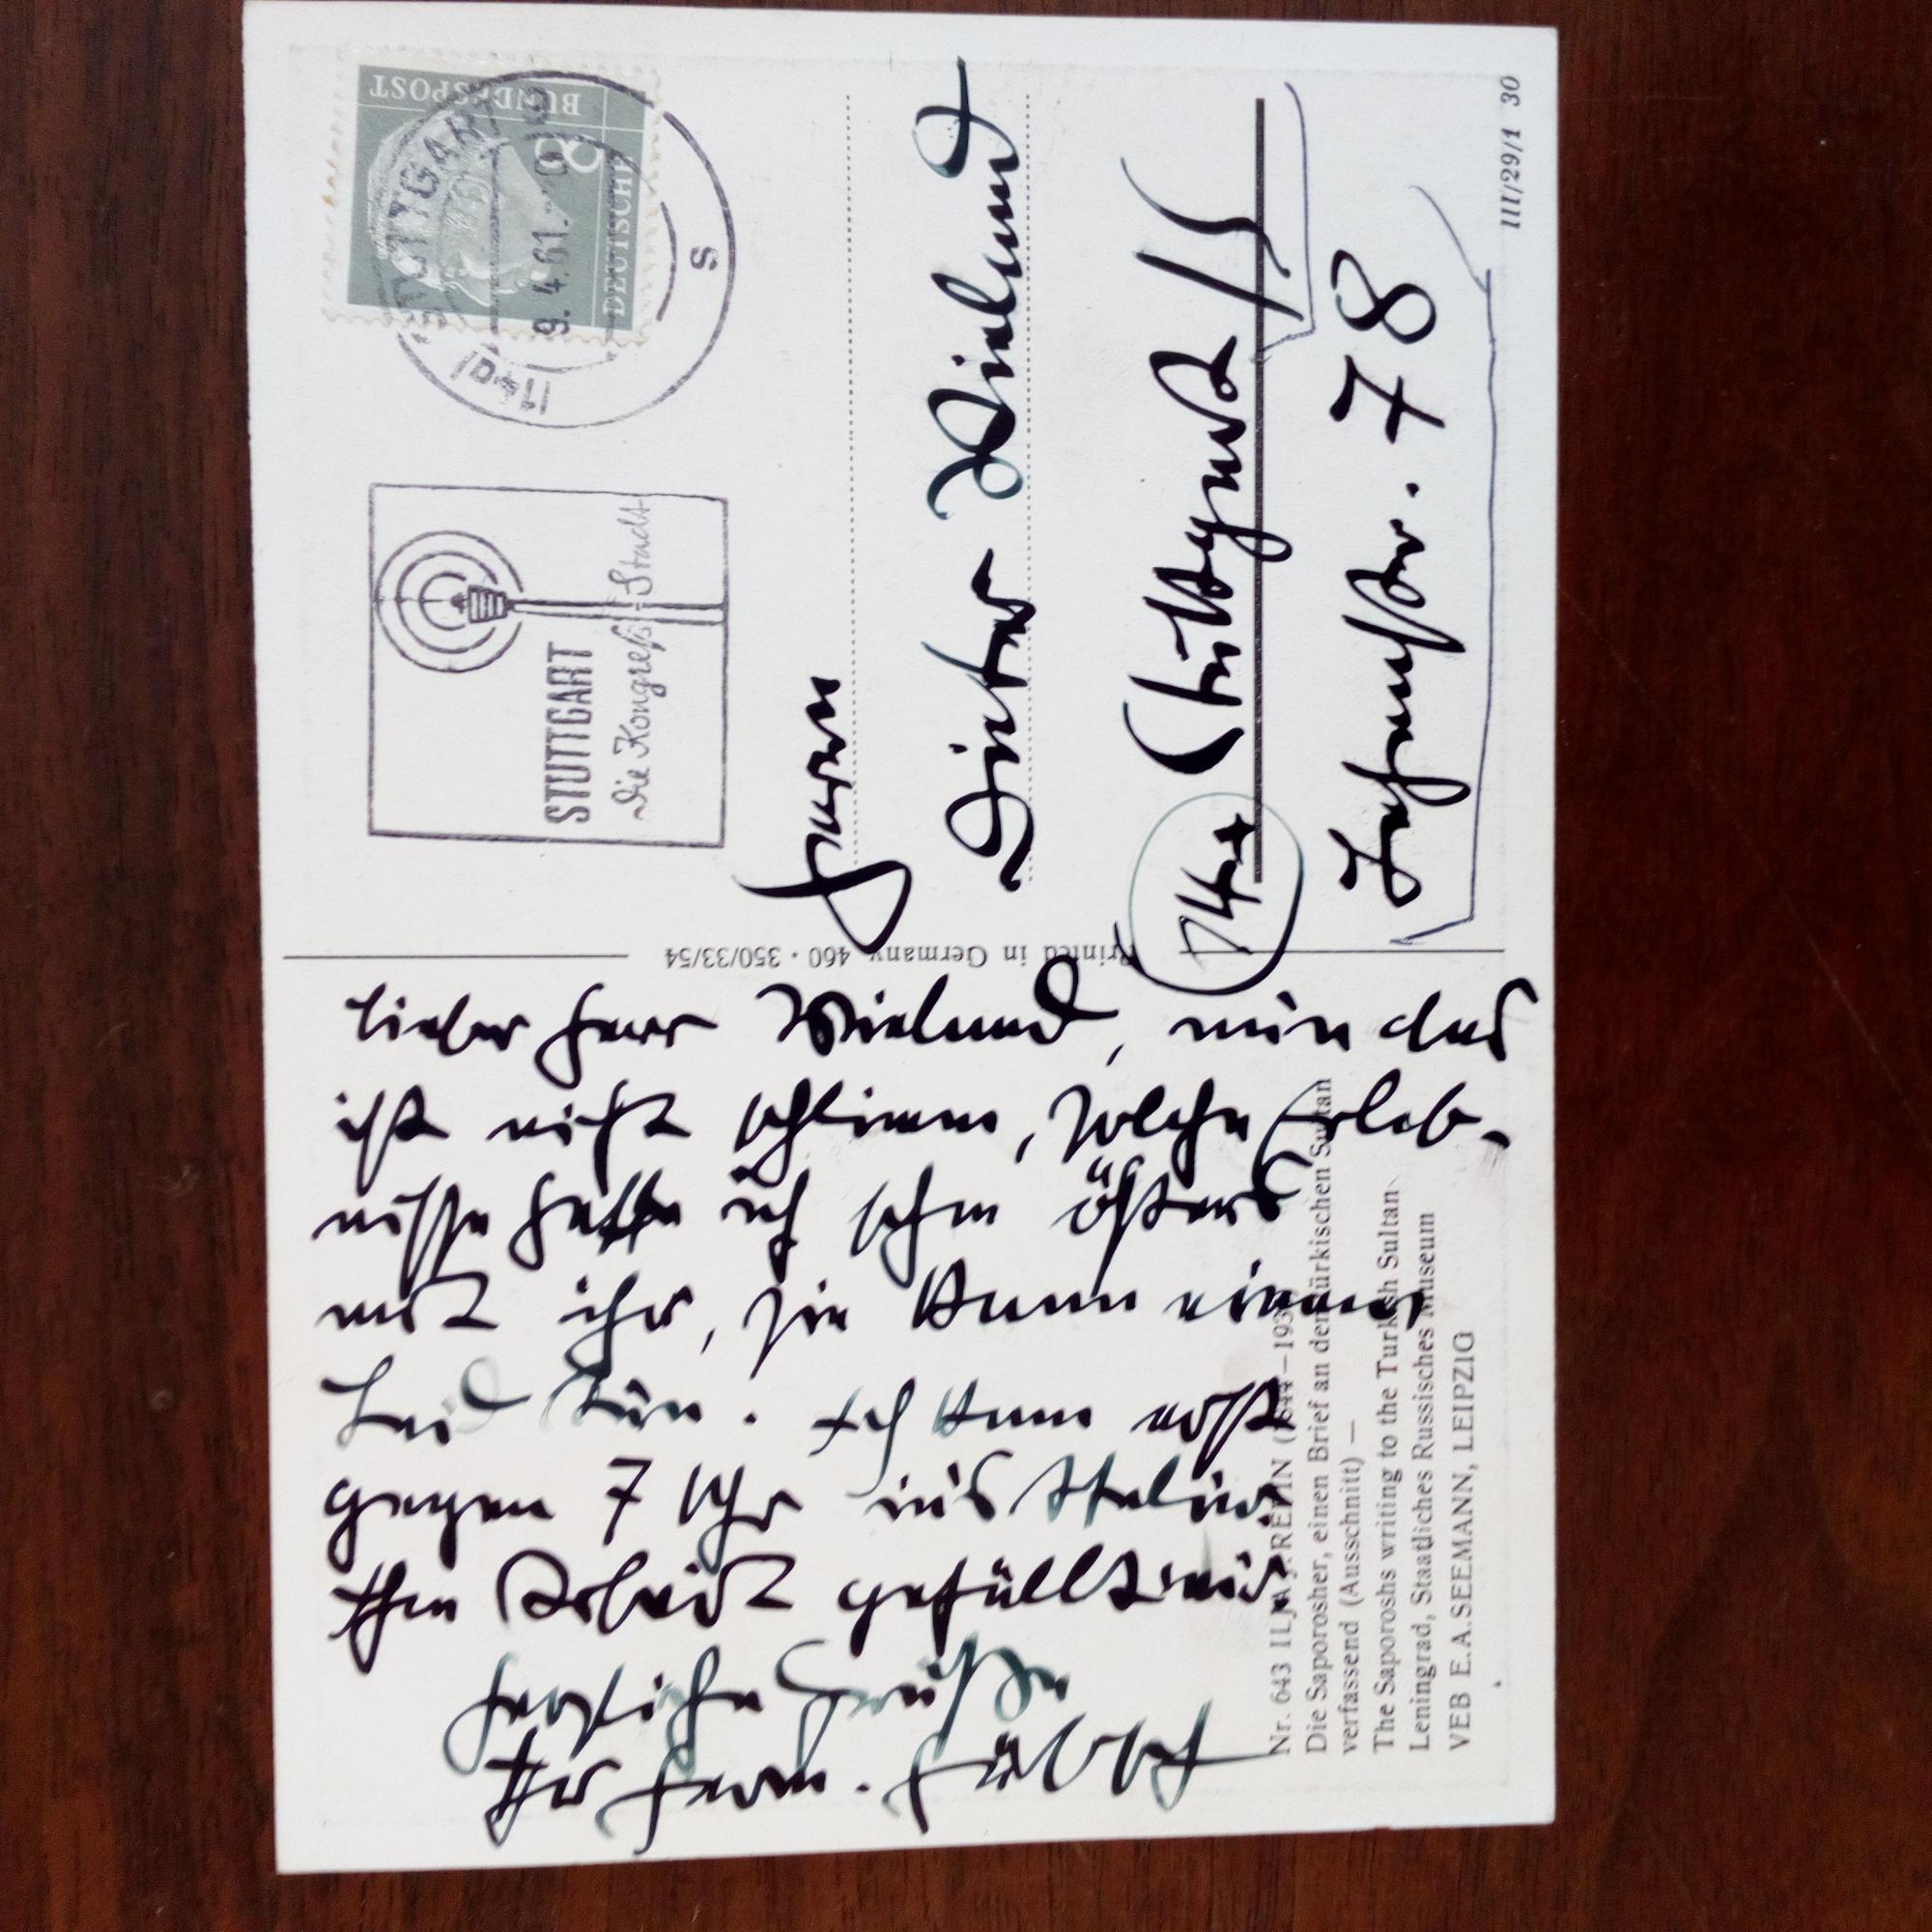 DEUTSCHE
BUNDESPOST
8
STUTTGART
9.4.61
s
STUTTGART
Die Kongreß-Stadt
Herrn
Dieter Wieland
(14a) Stuttgart / S
Jahnstr. 78
Printed in Germany 460 · 350/33/54
III/29/1 30
lieber Herr Wieland, nun das
ist nicht schlimm, solche Erleb-
nisse hatte ich schon öfters
mit ihr, sie kann einem
Leid tun. Ich kam erst
gegen 7 Uhr ins Atelier
Ihre Arbeit gefällt mir
herzliche Grüße
Ihr Herm.
Nr. 643 ILJA J. REPIN (1844–193
Die Saporosher, einen Brief an den türkischen Sultan
verfassend (Ausschnitt) —
The Saporoshs writing to the Turkish Sultan
Leningrad, Staatliches Russisches Museum
VEB E.A.SEEMANN, LEIPZIG